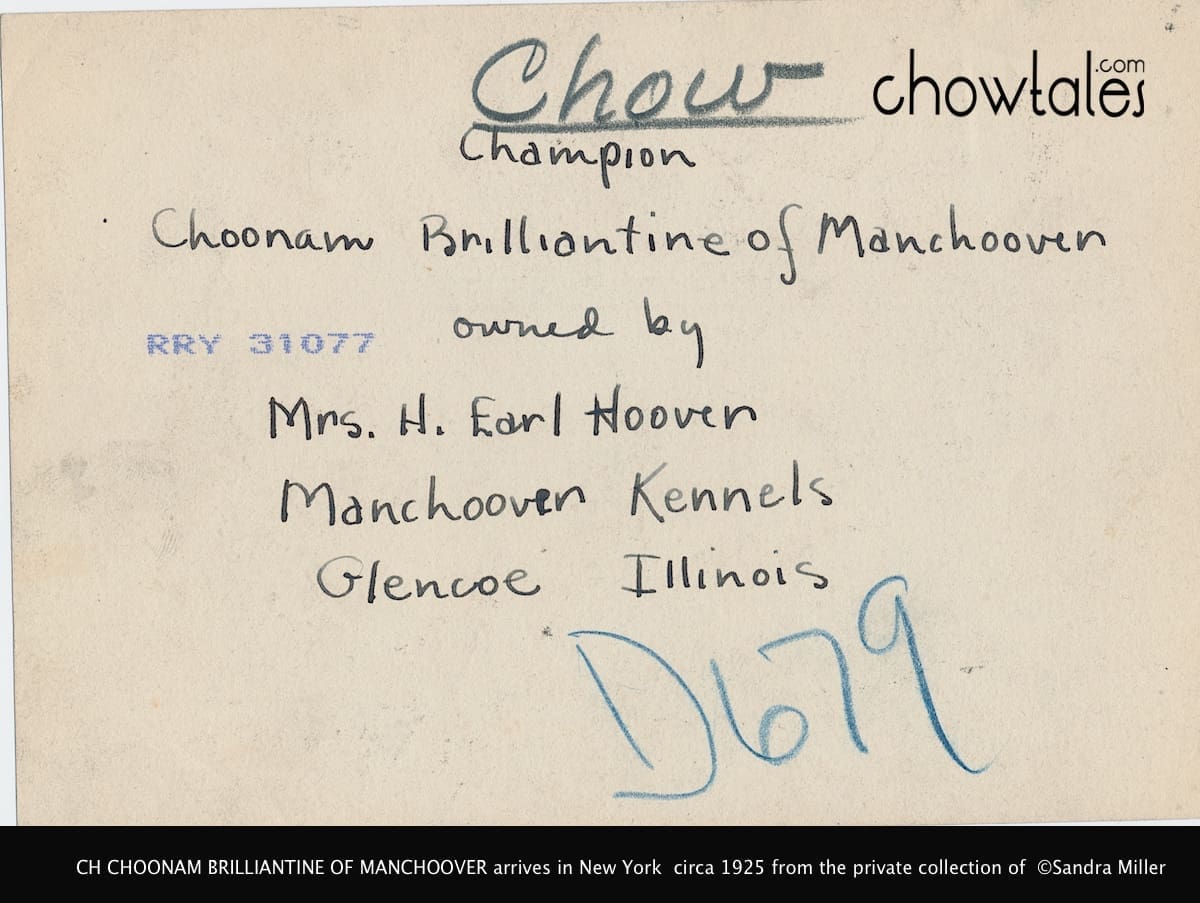 Chow
chowtales.com
Champion
Choonam Brilliantine of Manchoover
owned by
RRY 31077
Mrs. H. Earl Hoover
Manchoover Kennels
Glencoe Illinois
D679
CH CHOONAM BRILLIANTINE OF MANCHOOVER arrives in New York circa 1925 from the private collection of ©Sandra Miller